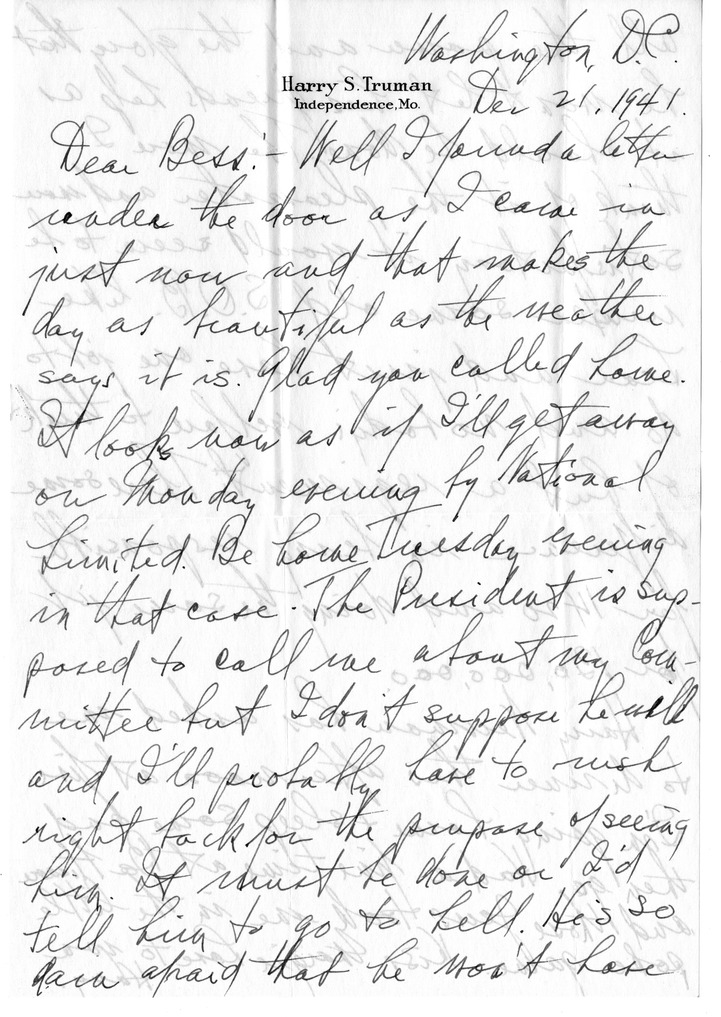 Washington, D.C.
Harry S. Truman
Independence, Mo.
Dec 21, 1941.
Dear Bess:- Well I found a letter
under the door as I came in
just now and that makes the
day as beautiful as the weather
says it is. Glad you called home.
It looks now as if I'll get away
on Monday evening by National
Limited. Be home Tuesday evening
in that case. The President is sup-
posed to call me about my Com-
mittee but I don't suppose he will
and I'll probably have to rush
right back for the purpose of seeing
him. It must be done or I'd
tell him to go to hell. He's so
darn afraid that he won't have